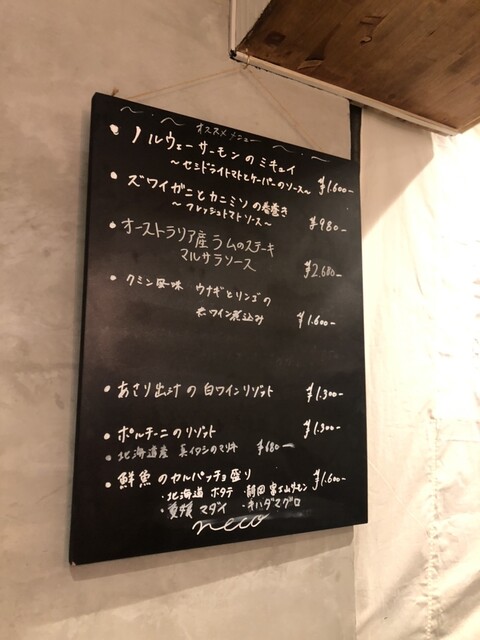 オススメメニュー
・ノルウェーサーモンのミキュイ
～セミドライトマトとケーパーのソース～ ¥1.600-
・ズワイガニとカニミソの春巻き
～フレッシュトマトソース～ ¥980-
・オーストラリア産ラムのステーキ
マルサラソース ¥2.680-
・クミン風味 ウナギとリンゴの
赤ワイン煮込み ¥1.600-
・あさり出汁の白ワインリゾット ¥1.300-
・ポルチーニのリゾット ¥1.300-
・北海道産 真イワシのマリネ ¥680-
・鮮魚のカルパッチョ盛り ¥1.600-
・北海道 ホタテ ・静岡 富士山サーモン
・愛媛 マダイ ・キハダマグロ
neco